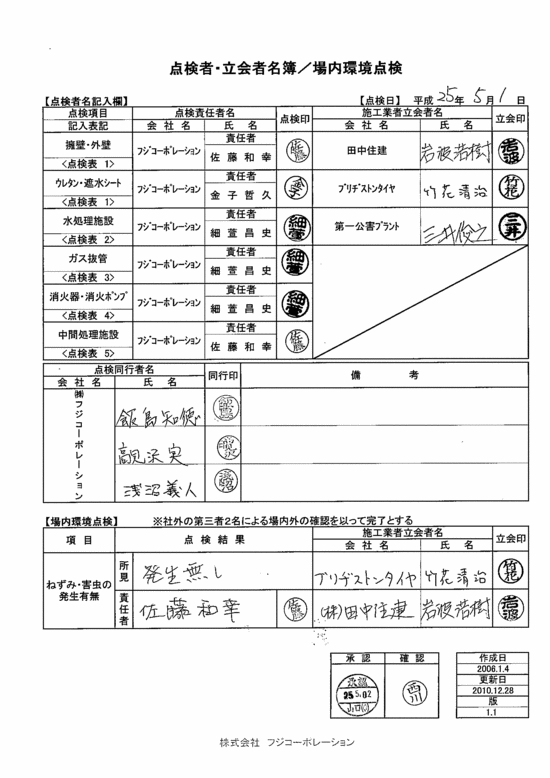 点検者・立会者名簿／場内環境点検
【点検者名記入欄】
【点検日】 平成 25年 5月 1日
点検項目 点検責任者名 点検印 施工業者立会者名 立会印
記入表記 会社名 氏名 会社名 氏名
擁壁・外壁 フジコーポレーション 責任者 佐藤 田中住建 岩波浩樹 岩波
<点検表 1> 佐藤和幸
ウレタン・遮水シート フジコーポレーション 責任者 ブリヂストンタイヤ 竹花清治 竹花
<点検表 1> 金子哲久
水処理施設 フジコーポレーション 責任者 細萱 第一公害プラント 三井俊之 三井
<点検表 2> 細萱昌史
ガス抜管 フジコーポレーション 責任者 細萱
<点検表 3> 細萱昌史
消火器・消火ポンプ フジコーポレーション 責任者 細萱
<点検表 4> 細萱昌史
中間処理施設 フジコーポレーション 責任者 佐藤
<点検表 5> 佐藤和幸
点検同行者名 同行印 備考
会社名 氏名
㈱フジコーポレーション
飯島知徳
高見沢実
浅沼義人
【場内環境点検】 ※社外の第三者2名による場内外の確認を以って完了とする
項目 点検結果 施工業者立会者名 立会印
会社名 氏名
ねずみ・害虫の発生有無
所見 発生無し ブリヂストンタイヤ 竹花清治 竹花
責任者 佐藤和幸 佐藤 (株)田中住建 岩波浩樹 岩波
承認 確認
承認 25.5.02 山口 西川
作成日
2006.1.4
更新日
2010.12.28
版
1.1
株式会社 フジコーポレーション